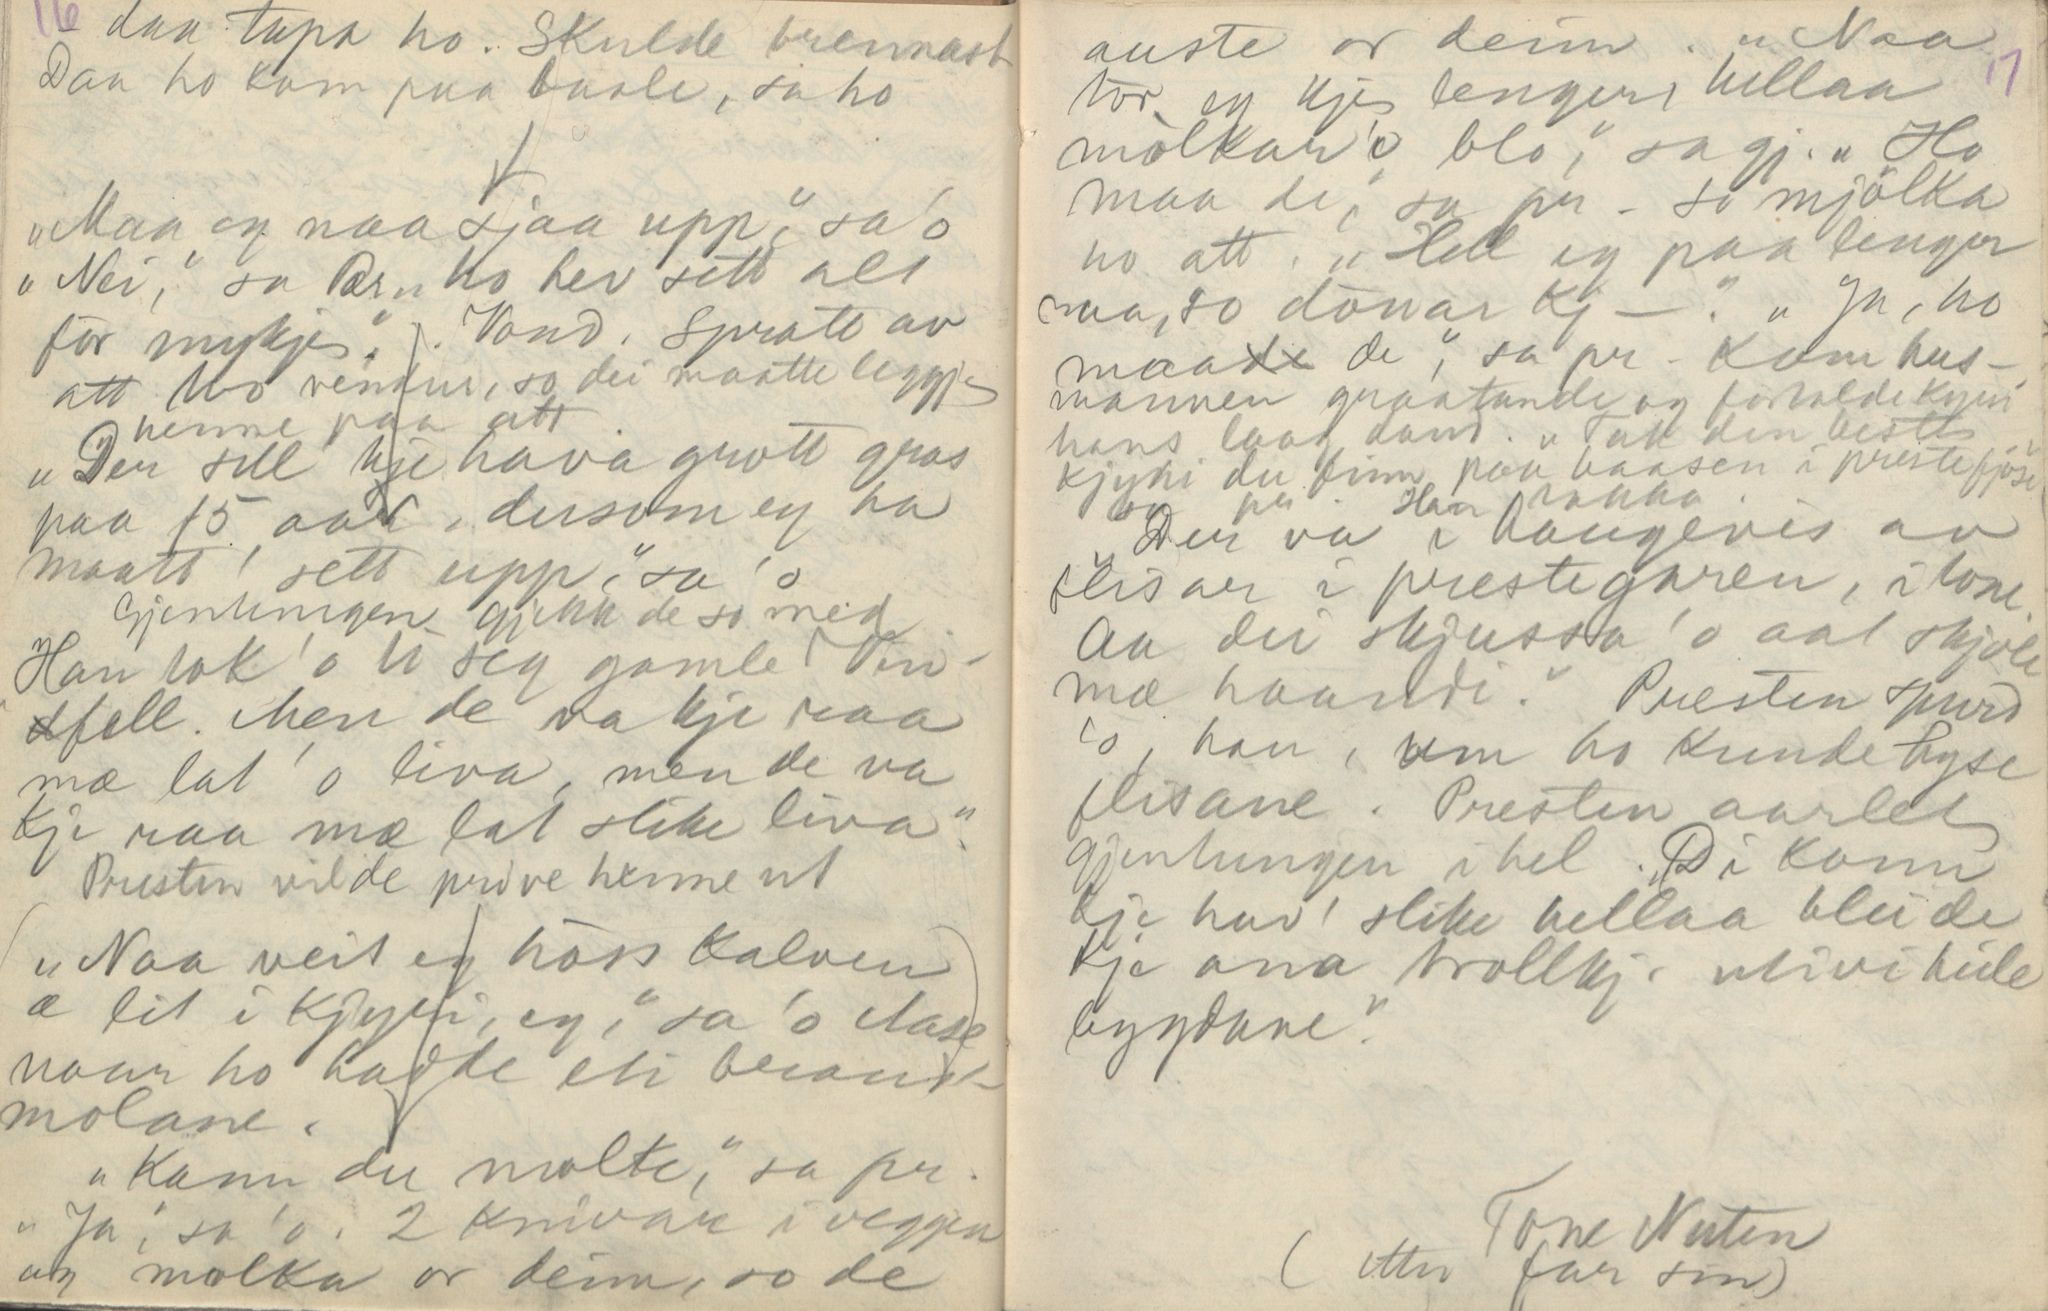 16
daa tapa ho. Skulde brennast
Daa ho kom paa baale, sa ho
"Maa eg naa sjaa upp," sa 'o
"Nei," sa Pær "ho hev sett alt
for mykje". Vond. Spratt av
att tvo vendur, so dei maatte leggje
henne paa att
"Der sill kje hava grott gras
paa 15 aar, dersom eg ha
maatt' sett upp," sa 'o
Gjentungen gjekk de so med
Han tok 'o ti seg gamle Vin-
fell. Men de va kje raa
mæ lat 'o liva, men de va
kje raa mæ lat slike liva".
Presten vilde prøve henne ut
("Naa veit eg höss kalven
æ lit i kjyri, eg," sa 'o Aase
naar ho hadde eti brand-
molane.
"Kann du molke," sa pr.
"Ja," sa 'o. 2 knivar i veggen
og molka or deim, so de
17
auste or deim. "Naa
tör eg kje lenger, hellaa
mölkar 'o blo," sa gj. "Ho
maa de," sa pr - so mjölka
ho att. "Held eg paa lenger
naa, so dönar kj —." "Ja, ho
maa de," sa pr - Kom hus-
mannen graatande og fortalde kyri
hans laag daud. "Tak den beste
kjyri du finn paa baasen i prestefjöse"
sa pr. Han
"Der va i haugevis av
flisar i prestegaren, i tone.
Aa dei skjussa 'o aat skjole
mæ haandi." Presten spurd
'o, han, um ho kunde hyse
flisane. Presten aarlet
gjentungen ihel. "Di kann
kje hav' slike hellaa blei de
kje ana trollkj. utivi heile
bygdane".
Tone Nuten
(etter far sin)